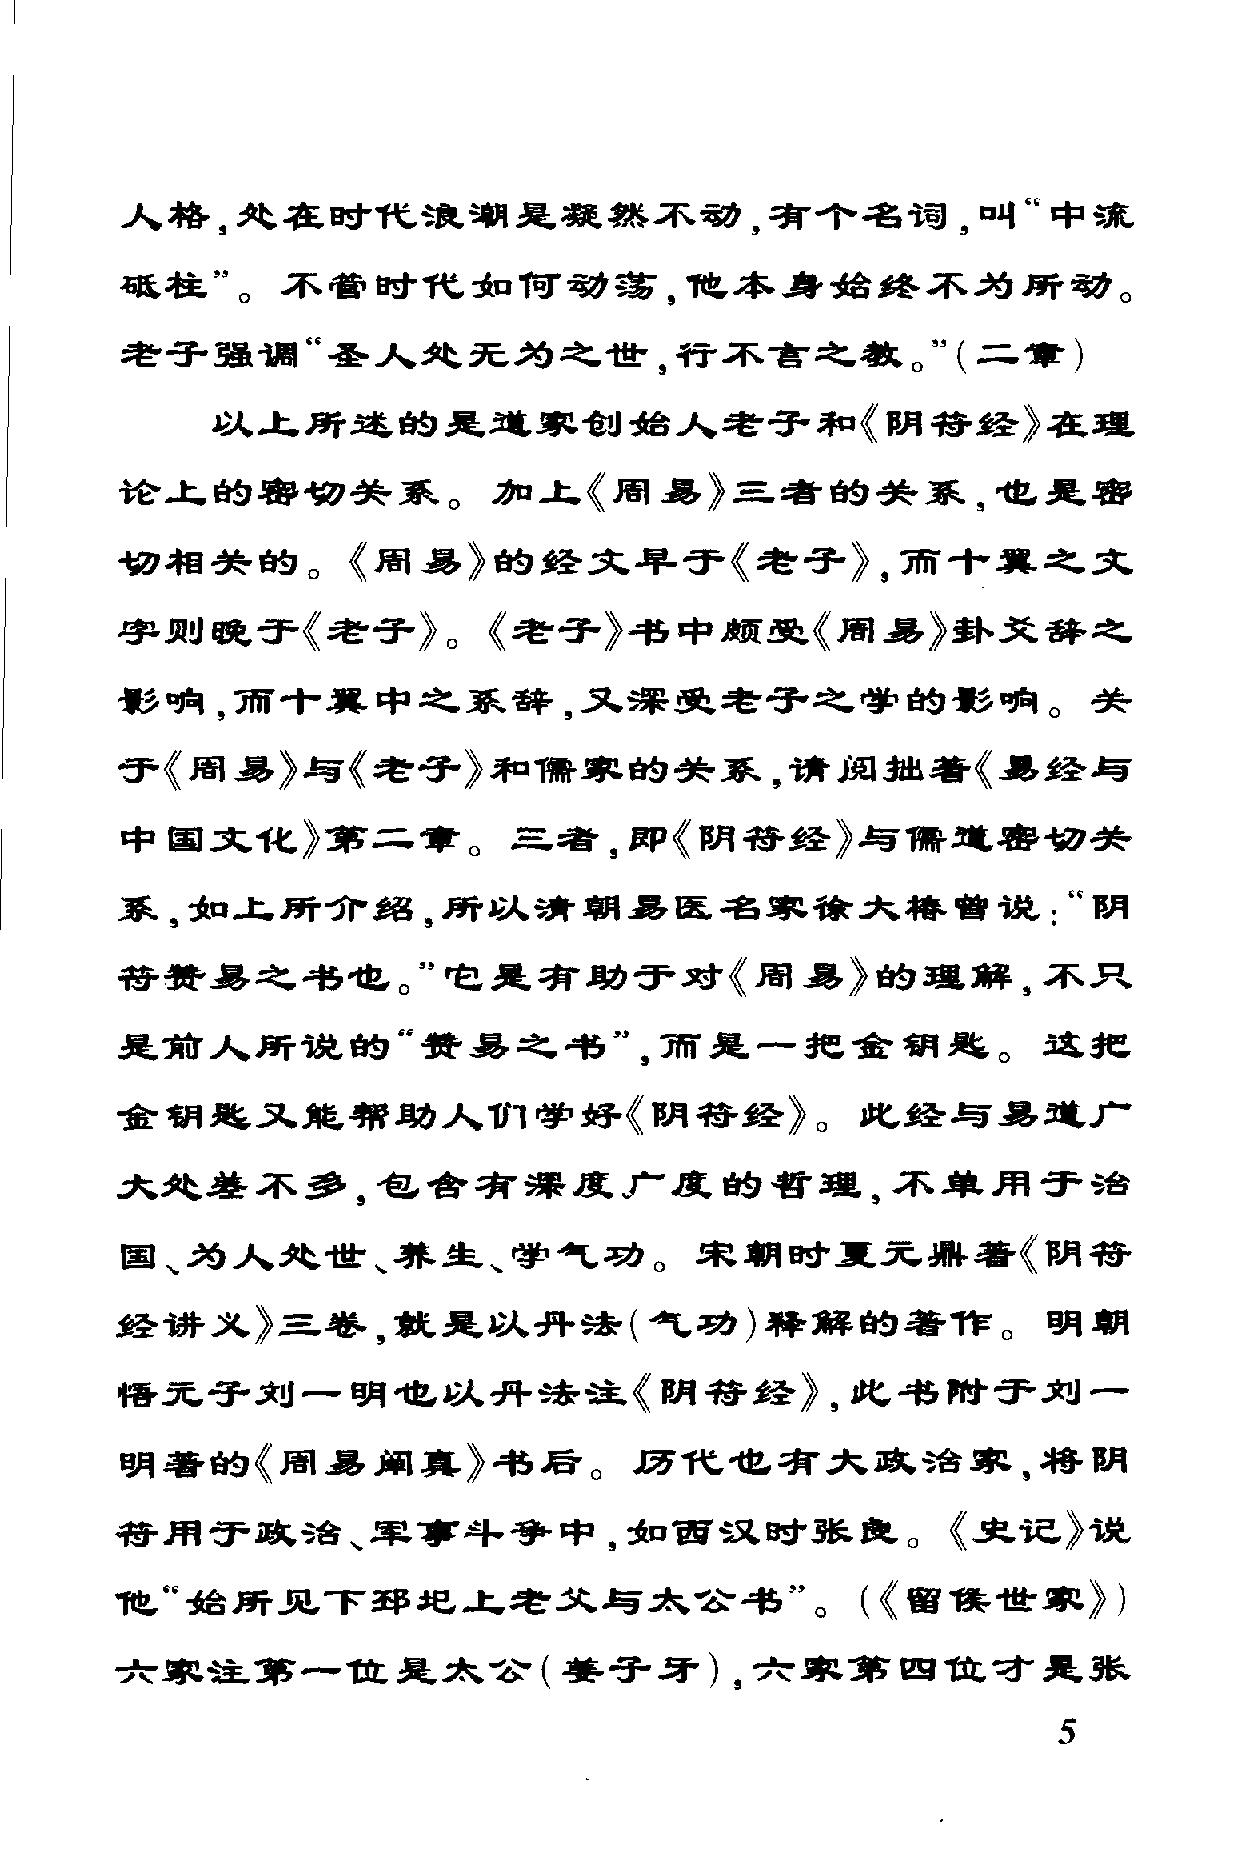 人格,处在时代浪潮是凝然不动,有个名词,叫“中流
砥柱”。不管时代如何动荡,他本身始终不为所动。
老子强调“圣人处无为之世,行不言之教。”(二章)
以上所述的是道家创始人老子和《阴符经》在理
论上的密切关系。加上《周易》三者的关系,也是密
切相关的。《周易》的经文早于《老子》,而十翼之文
字则晚于《老子》。《老子》书中颇受《周易》卦爻辞之
影响,而十翼中之系辞,又深受老子之学的影响。关
于《周易》与《老子》和儒家的关系,请阅拙著《易经与
中国文化》第二章。三者,即《阴符经》与儒道密切关
系,如上所介绍,所以清朝易医名家徐大椿曾说:“阴
符赞易之书也。”它是有助于对《周易》的理解,不只
是前人所说的“赞易之书”,而是一把金钥匙。这把
金钥匙又能帮助人们学好《阴符经》。此经与易道广
大处差不多,包含有深度广度的哲理,不单用于治
国、为人处世、养生、学气功。宋朝时夏元鼎著《阴符
经讲义》三卷,就是以丹法(气功)释解的著作。明朝
悟元子刘一明也以丹法注《阴符经》,此书附于刘一
明著的《周易阐真》书后。历代也有大政治家,将阴
符用于政治、军事斗争中,如西汉时张良。《史记》说
他“始所见下邳圯上老父与太公书”。(《留侯世家》)
六家注第一位是太公(姜子牙),六家第四位才是张
5